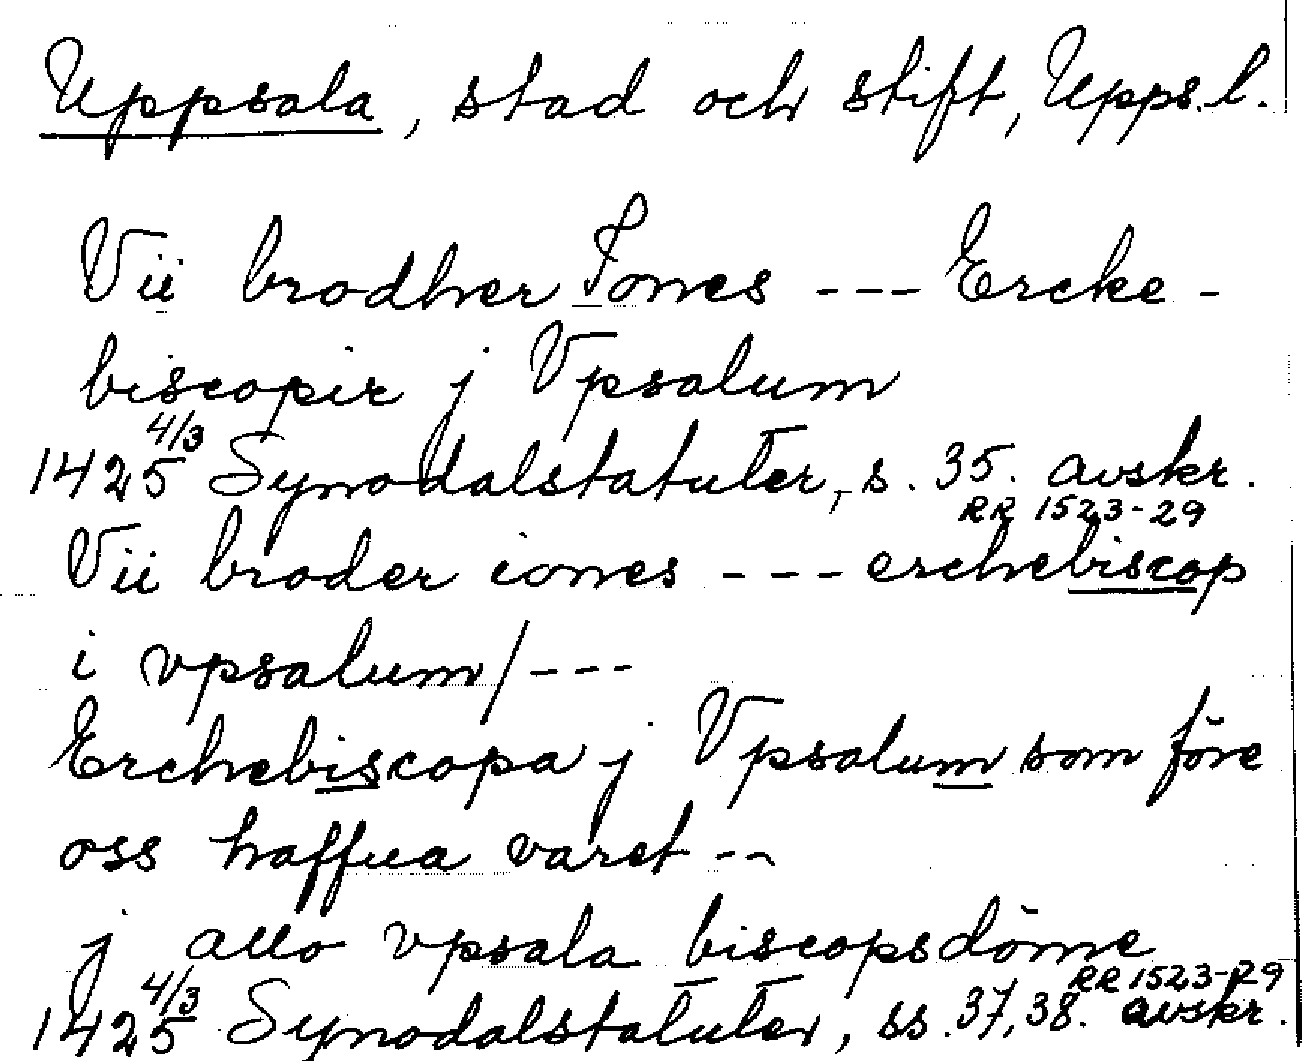 Uppsala, stad och stift, Upps.l.
Vii brodher Jones --- Ercke-
biscopir j Vpsalum
1425 4/3 Synodalstatuter, s. 35. avskr.
RR 1523-29
Vii broder iones --- erchebiscop
i vpsalum/---
Erchebiscopa j Vpsalum som före
oss haffua varet --
j allo vpsala biscopsdöme
RR 1523-29
1425 4/3 Synodalstatuter, ss. 37, 38. avskr.